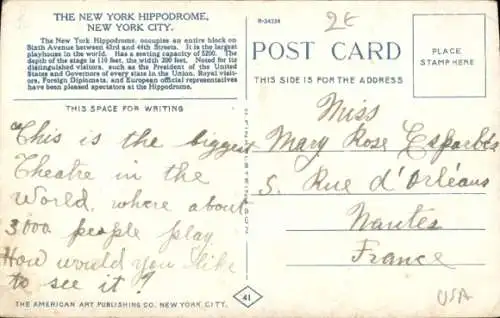 THE NEW YORK HIPPODROME,
NEW YORK CITY.
The New York Hippodrome, occupies an entire block on
Sixth Avenue between 43rd and 44th Streets. It is the largest
playhouse in the world. Has a seating capacity of 5200. The
depth of the stage is 110 feet, the width 200 feet. Noted for its
distinguished visitors, such as the President of the United
States and Governors of every state in the Union. Royal visit-
ors, Foreign Diplomats, and European official representatives
have been pleased spectators at the Hippodrome.
THIS SPACE FOR WRITING
This is the biggest
Theatre in the
World, where about
3000 people play
How would you like
to see it?
THE AMERICAN ART PUBLISHING CO. NEW YORK CITY.
41
R-24234
2€
POST CARD
THIS SIDE IS FOR THE ADDRESS
PLACE
STAMP HERE
Miss
Mary Rose Esparbès
5, Rue d'Orléans
Nantes
France
USA